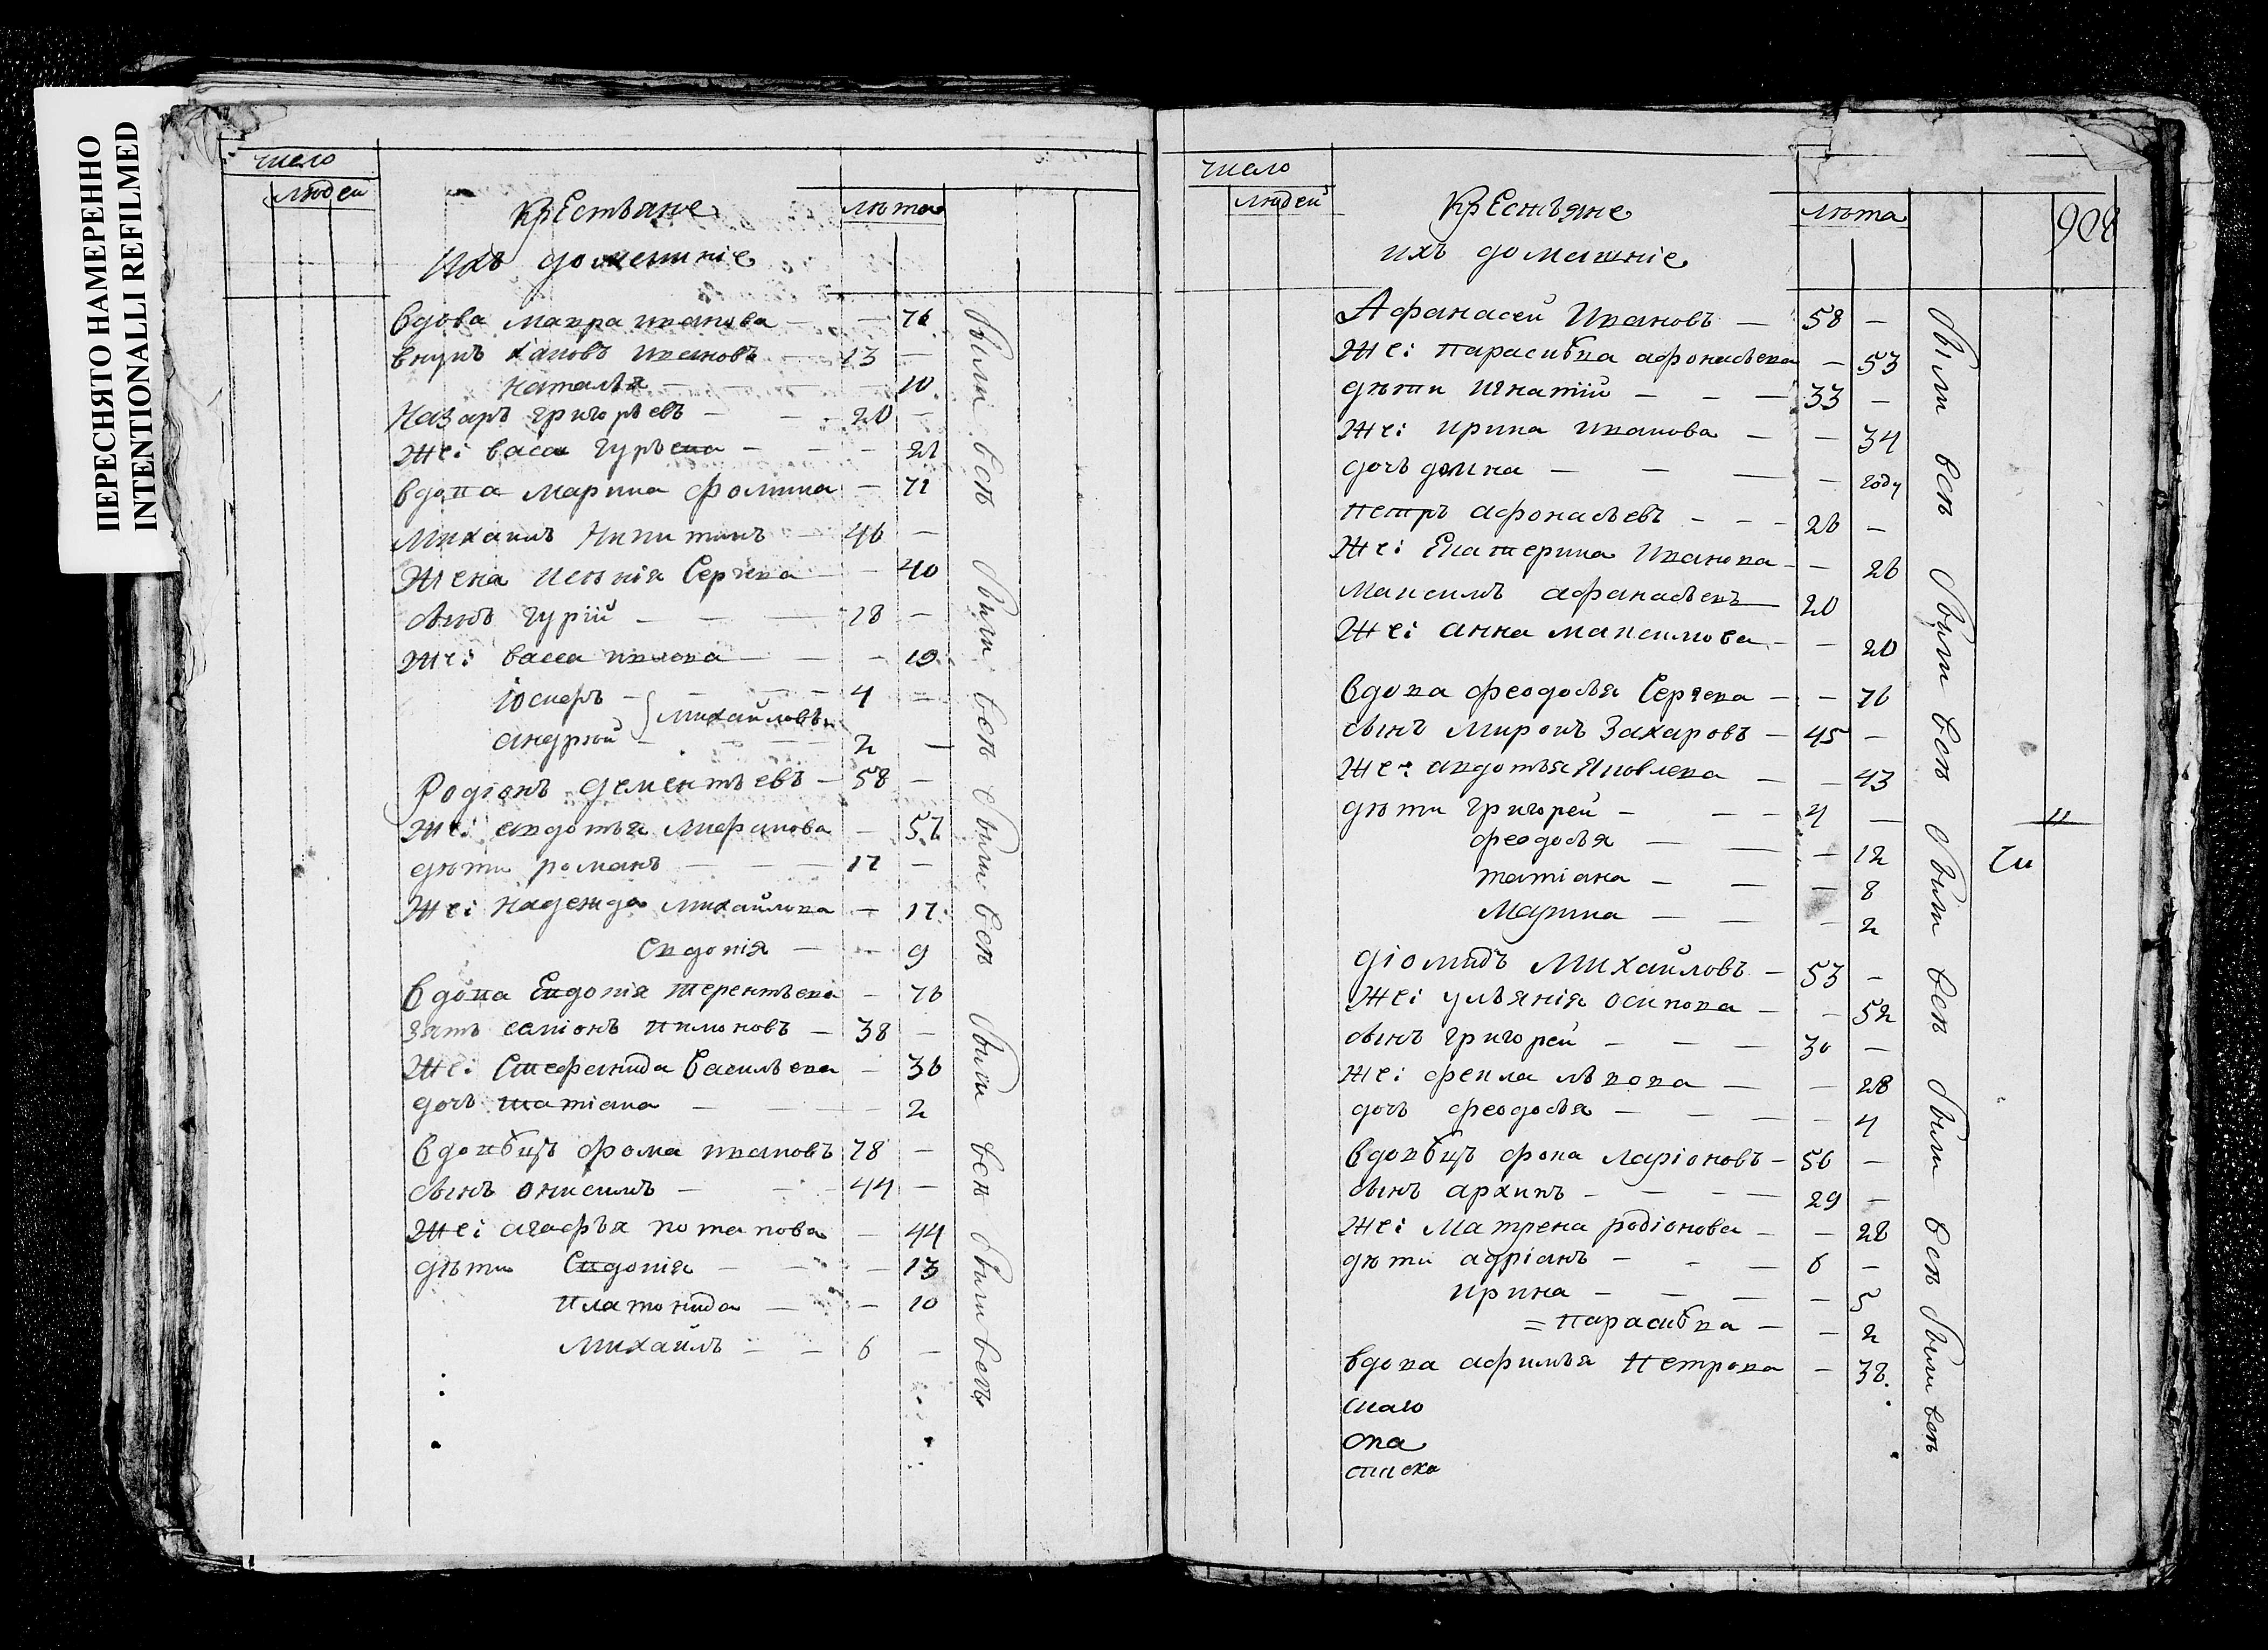 ПЕРЕСНЯТО НАМЕРЕННО
INTENTIONALLI REFILMED
число
людей
крестьяне
ихъ домашніе
лѣта
вдова мавра иванова — — 76
внукъ иановъ 13 —
наталья — — 10
Назаръ григорьевъ — 20 —
же: васа гурьева — — 21
вдова марина фомина — 71
михаилъ никитинъ — 46 —
жена Сергева — — 40
сынъ гурій — 18 —
же: васса — — 19
андрей } михайловы — 2 —
Родіонъ дементьевъ — 58 —
же: авдотья — 57
дѣти романъ — 17 —
же: надежда михайлова — 17
Евдокія — — 9
вдова Евдокія терентьева — 76
зять семіонъ пимоновъ — 38 —
же: Стефанида василъева — 36
дочь татіана — — 2
вдовецъ фома ивановъ 78 —
сынъ онисимъ — 44 —
же: агафья потапова — 44
дѣти Евдокія — — 13
платонида — — 10
михайлъ — — 6 —
были всѣ были всѣ были всѣ были всѣ были всѣ
число
людей
крестьяне
ихъ домашніе
лѣта
908
Афанасей Ивановъ — 58 —
же: парасковa афонасьева — 53
дѣти игнатій — — — 33 —
же: ирина иванова — — 34
дочь домна — — — — году
петръ афонасьевъ — — — 26 —
же: Екатерина иванова — — 26
максимъ афанасьевъ — 20
же: анна максимова — — 20
вдова феодосья Сергева — — 76
сынъ миронъ Захаровъ — 45 —
же: авдотья яковлева — — 43
дѣти григорей — — — 4 —
феодосья — — — 12
татіана — — — 8
марина — — — 2
діомидъ михайловъ — 53 —
же: ульянія осипова — — 52
сынъ григорей — — — 30 —
же: фекла — — 28
дочь феодосья — — — — 4
вдовецъ фока ларіоновъ — 56 —
сынъ архипъ — — — — 29 —
же: матрена родіонова — — 28
дѣти адріанъ — — — 6 —
ирина — — — — 5
= парасковa — — 2
вдова афимья петрова — 38.
были всѣ были всѣ были всѣ были всѣ были всѣ